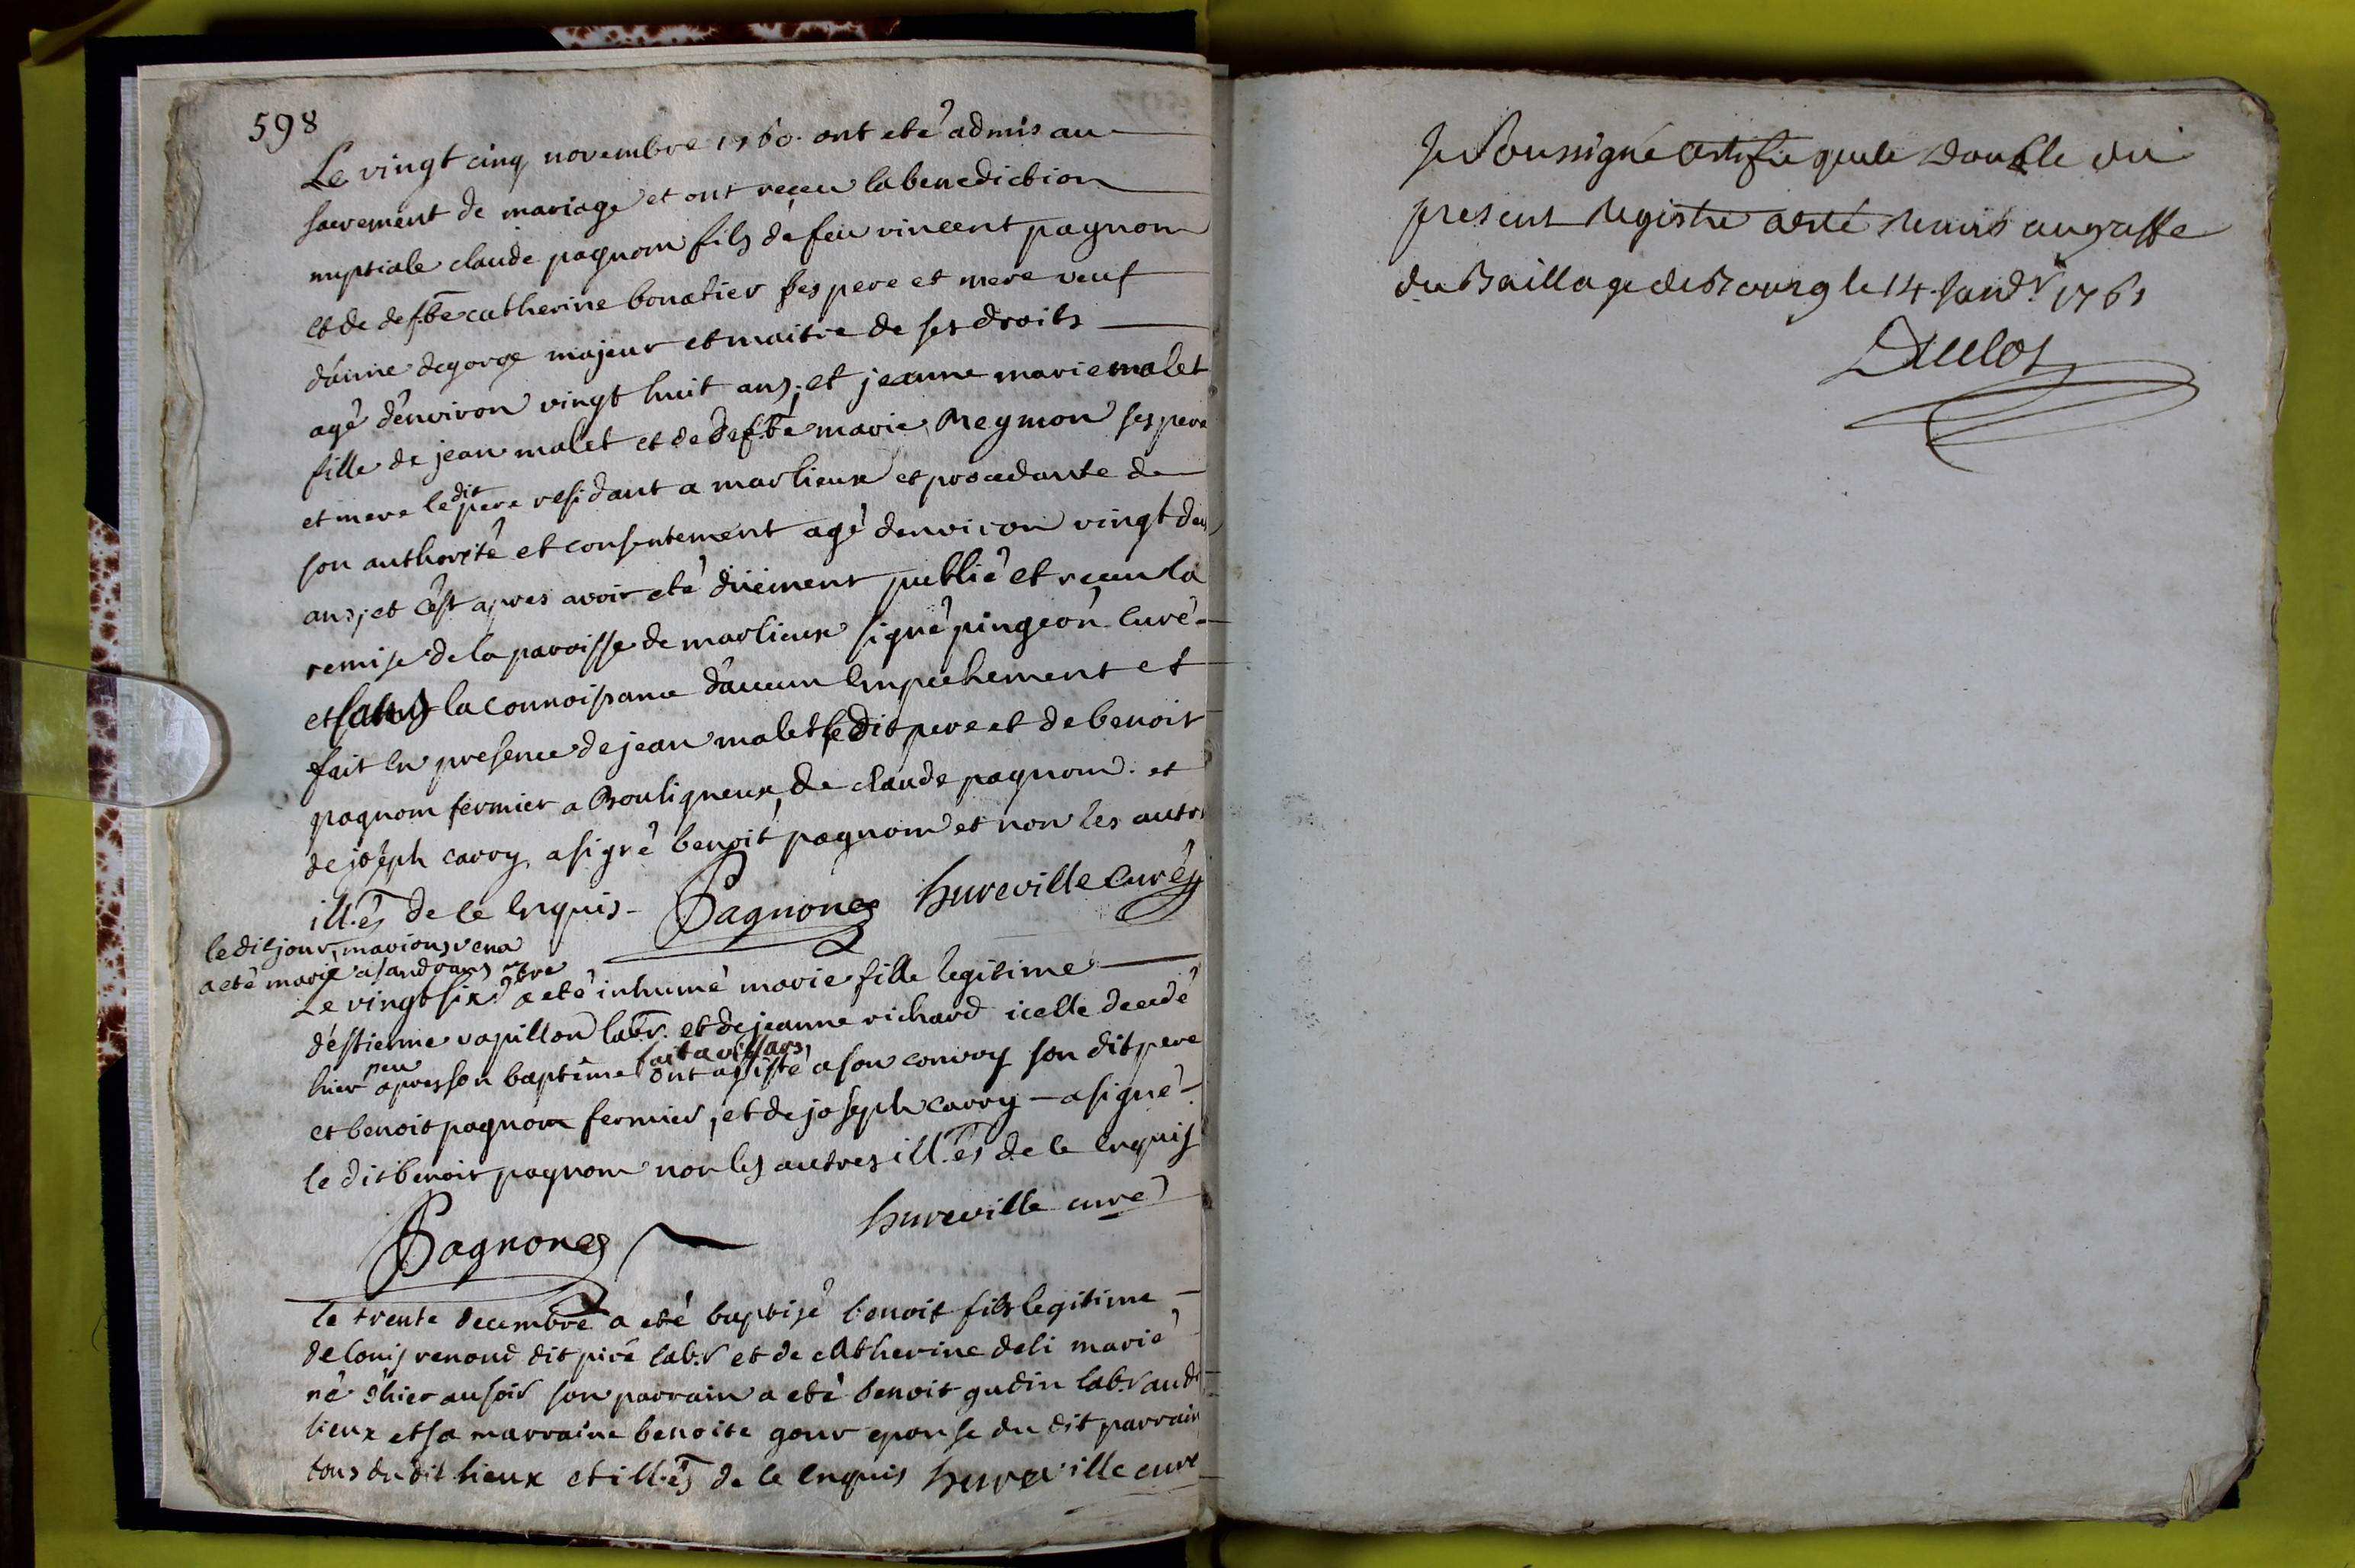 598
Le vingt cinq novembre 1760. ont eté admis au
sacrement de mariage et ont reçeu la benediction
nuptiale claude pagnom fils de feu vincent pagnom
et de deffte catherine bonatier ses pere et mere veuf
d'anne degorge majeur et maitre de ses droits
agé d'environ vingt huit ans; et jeanne marie malet
fille de jean malet et de deffte marie Neymon ses pere
et mere le dit pere residant a marlieux et procedante de
son authorité et consentement agé denviron vingt deux
ans; et c'est apres avoir eté düement publié et reçeu la
remise de la paroisse de marlieux signé pingeon curé
et sans la connoissance d'aucun empechement et
fait en presence de jean malet le dit pere et de benoit
pagnom fermier a Bouligneux, de claude pagnom. et
de joseph carry, a signé benoit pagnom et non les autres
ill.és de ce enquis - Pagnone hureville curé
le dit jour, marion vena
a eté marié a sandrans
Le vingt six 9bre a eté inhumé marie fille legitime
d'éstienne vapillon labr. et de jeanne richard icelle decedé
hier peu apres son baptême fait a villars, ont assisté a son convoy son dit pere
et benoit pagnom fermier, et de joseph carry - a signé -
le dit benoit pagnom non les autres ill.és de ce enquis
hureville curé
Pagnone
le trente decembre a eté baptisé benoit fils legitime
de louis renoud dit piré lab.r et de catherine deli marié
né d'hier au soir son parrain a eté benoit gudin lab.r au dt
lieux et sa marraine benoite gour epouse du dit parrain
tous du dit lieux et ill.és de ce enquis hureville curé
Je Soussigné Certifie que le double du
present Registre a esté Remis au greffe
du Baillage de Bourg le 14 Janvr 1761
Duclos